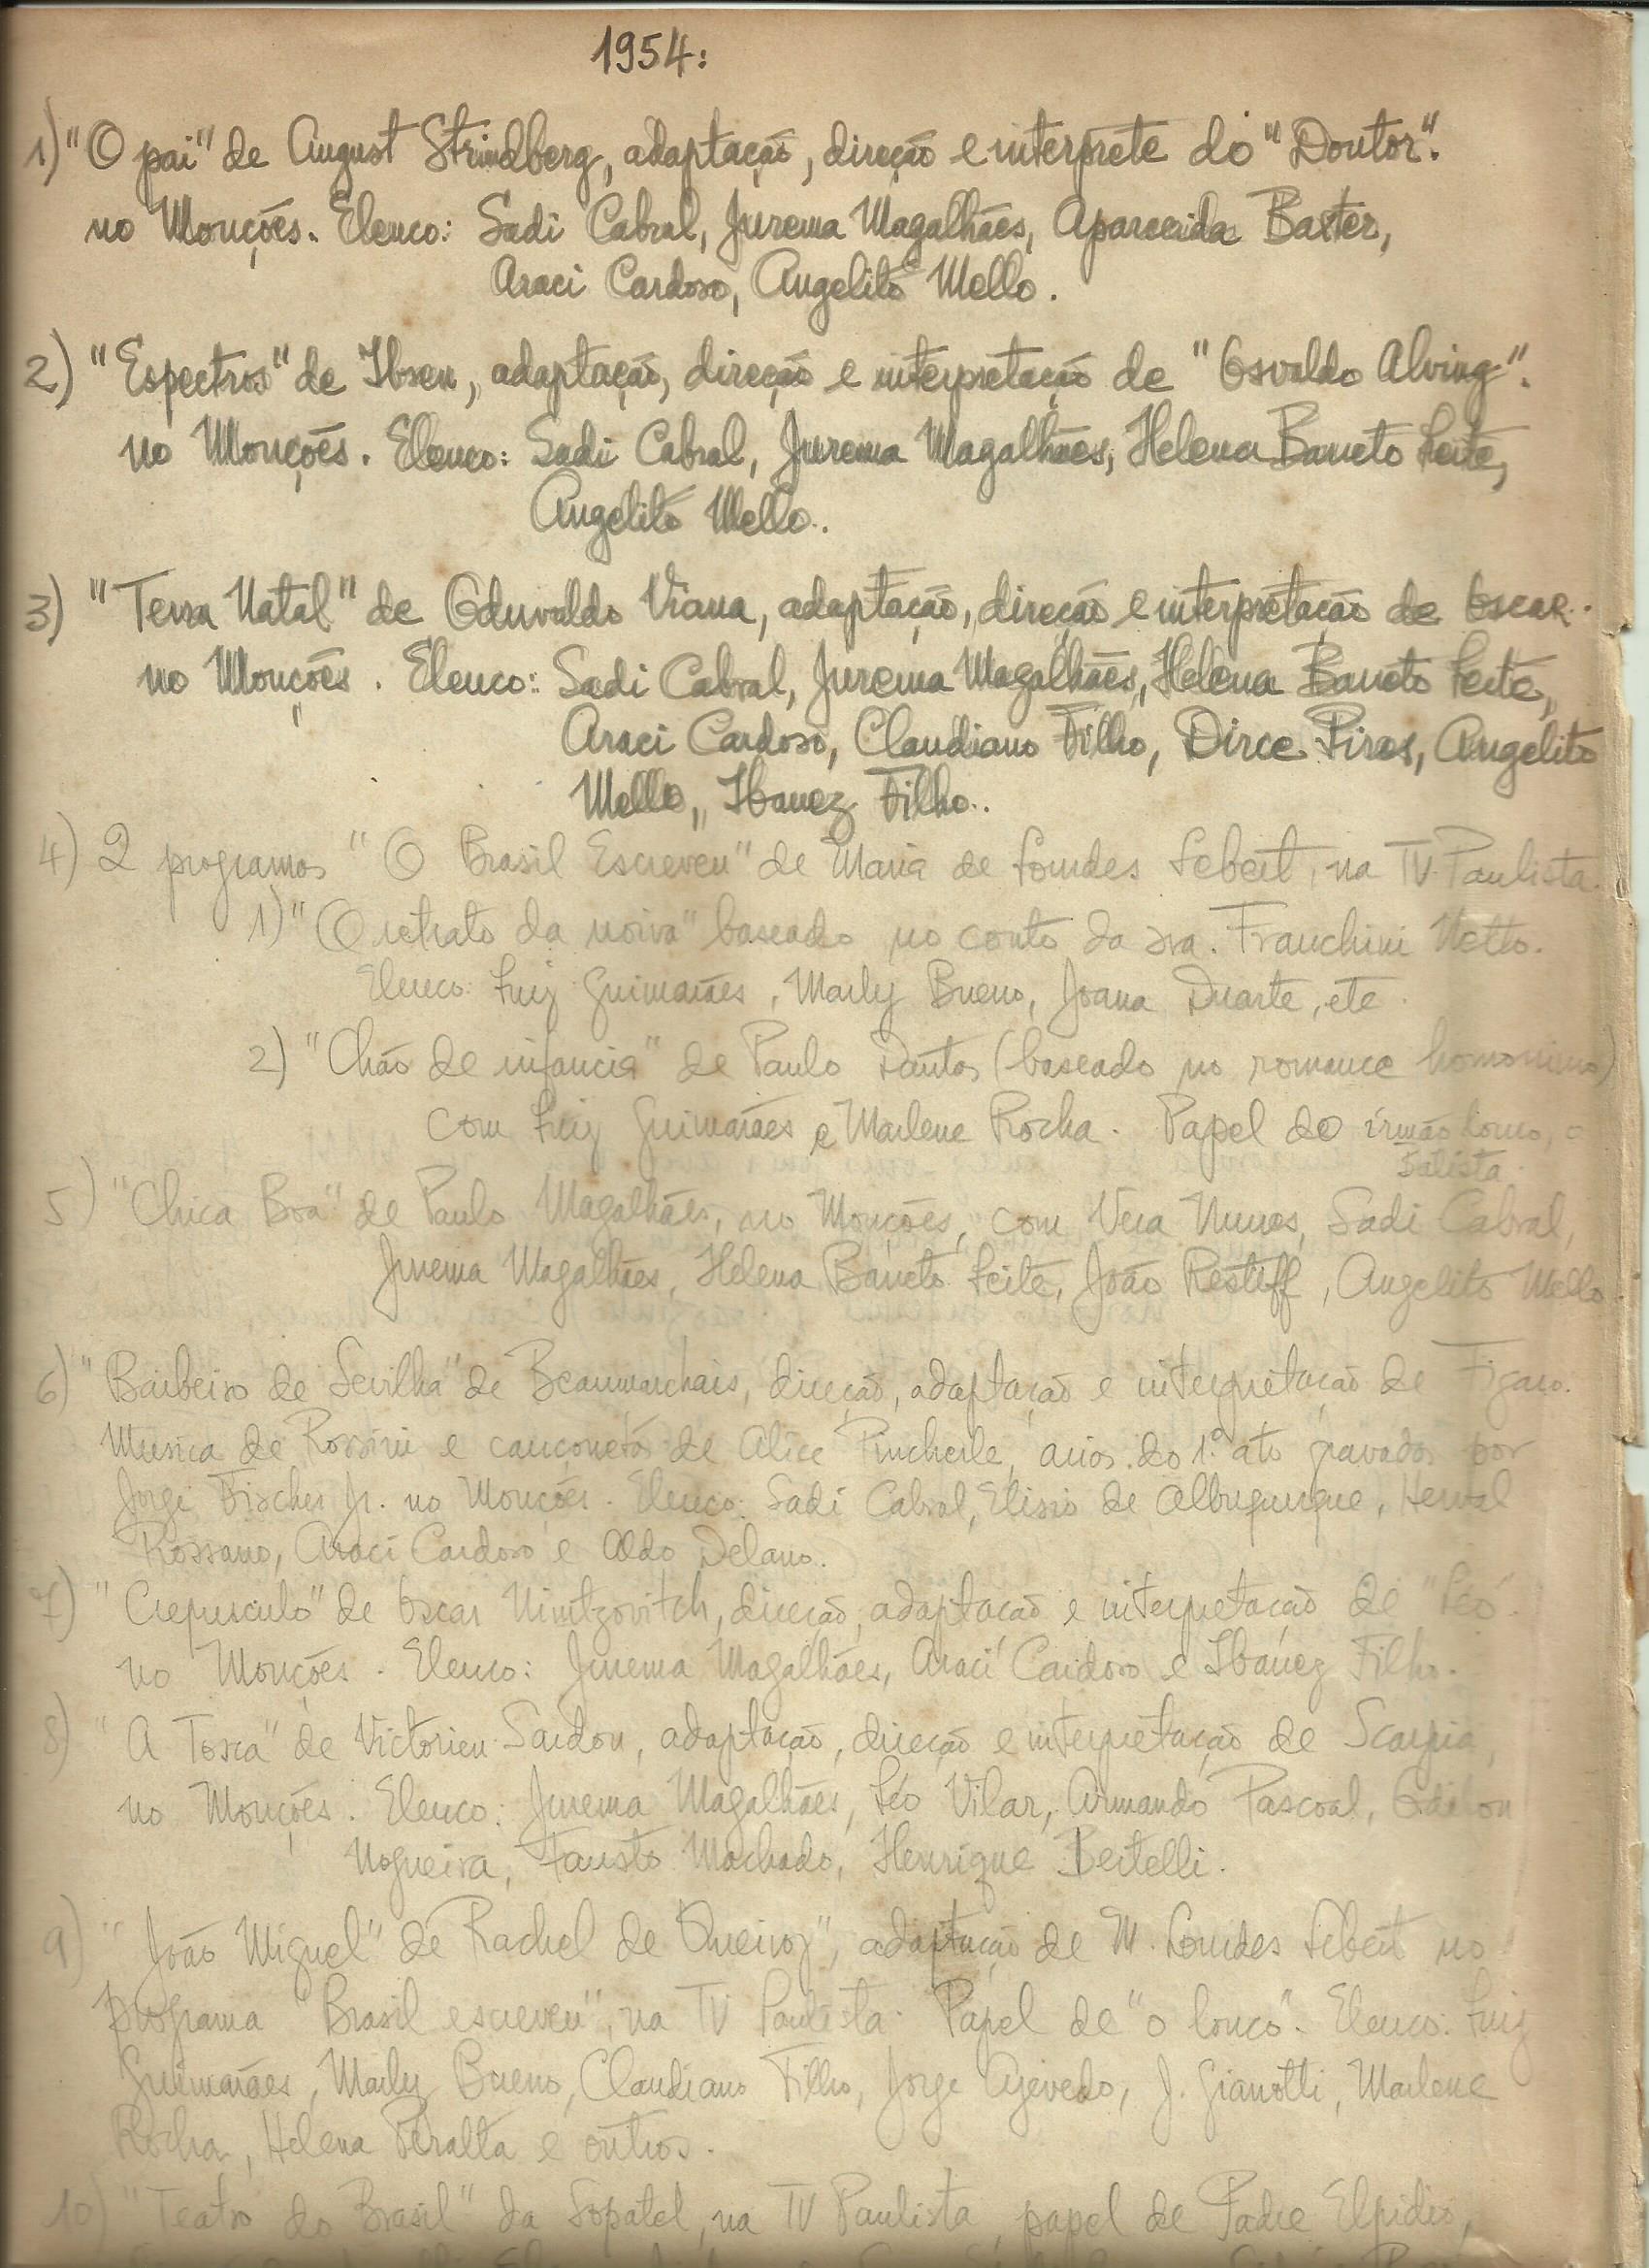 1954:
1) "O pai" de August Strindberg, adaptação, direção e interprete do "Doutor".
no Monções. Elenco: Sadi Cabral, Jurema Magalhães, Aparecida Baxter,
Araci Cardoso, Angelito Mello.
2) "Espectros" de Ibsen, adaptação, direção e interpretação de "Osvaldo Alving".
no Monções. Elenco: Sadi Cabral, Jurema Magalhães, Helena Barreto Leite,
Angelito Mello..
3) "Terra Natal" de Oduvaldo Viana, adaptação, direção e interpretação de Oscar.
no Monções. Elenco: Sadi Cabral, Jurema Magalhães, Helena Barreto Leite,
Araci Cardoso, Claudiano Filho, Dirce Pires, Angelito
Mello, Ibanez Filho..
4) 2 programas "O Brasil Escreveu" de Maria de Lourdes Lebert, na TV. Paulista.
1) "O retrato da noiva" baseado no conto da sra. Franchini Netto.
Elenco: Luiz Guimarães, Marly Bueno, Joana Duarte, etc.
2) "Chão de infancia" de Paulo Dantas (baseado no romance homonimo)
com Luiz Guimarães e Marlene Rocha. Papel do irmão louco, o
5) "Chica Boa" de Paulo Magalhães, no Monções, com Vera Nunes, Sadi Cabral,
Jurema Magalhães, Helena Barreto Leite, João Restiff, Angelito Mello.
6) "Barbeiro de Sevilha" de Beaumarchais, direção, adaptação e interpretação de Figaro.
Musica de Rossini e cançonetas de Alice Pincherle, arias do 1.º ato gravados por
Jorge Fischer Jr. no Monções. Elenco: Sadi Cabral, Elisio de Albuquerque, Herval
Rossano, Araci Cardoso e Aldo Delano.
7) "Crepusculo" de Oscar Nimtzovitch, direção, adaptação e interpretação de "Leo".
no Monções. Elenco: Jurema Magalhães, Araci Cardoso e Ibánez Filho.
8) "A Tosca" de Victorien Sardou, adaptação, direção e interpretação de Scarpia,
no Monções. Elenco: Jurema Magalhães, Léo Vilar, Armando Pascoal, Odilon
Nogueira, Fausto Machado, Henrique Bertelli.
9) "João Miguel" de Rachel de Queiroz", adaptação de M. Lourdes Lebert no
programa "Brasil escreveu", na TV Paulista. Papel de "o louco". Elenco: Luiz
Guimarães, Marly Bueno, Claudiano Filho, Jorge Azevedo, J. Gianotti, Marlene
Rocha, Helena Peralta e outros.
10) "Teatro do Brasil" da Sopatel, na TV Paulista, papel de Padre Elpidio,